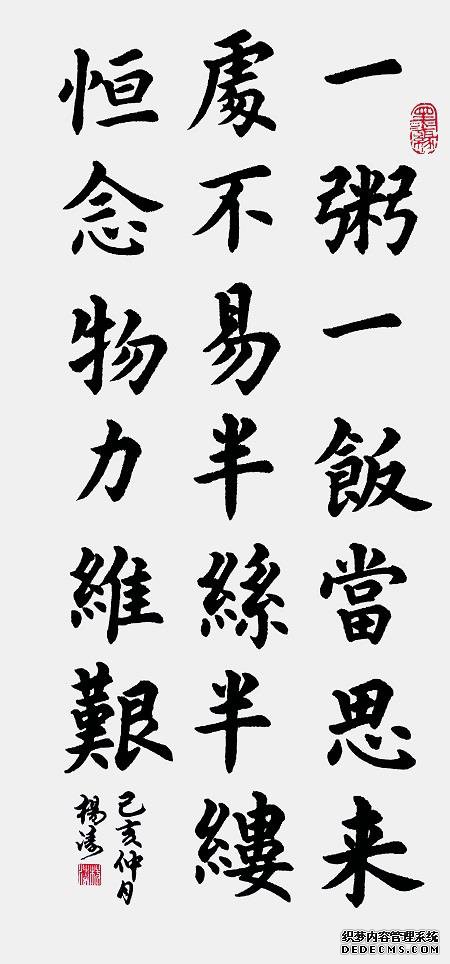 一粥一飯當思来
處不易半絲半縷
恒念物力維艱
己亥仲月
楊涛
织梦内容管理系统
DEDECMS.COM